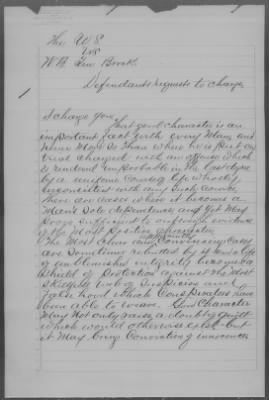 The U.S.
vs
W.B. Ten Broek
Defendants requests to charge
I charge you
That good character is an
important fact with every Man, and
never More so Than when he is put on
trial charged with an offense which
is rendered improbable in the last degree
by a uniform course of life wholly
inconsistent with any such Crime.
There are cases where it becomes a
Man's Sole dependence and yet May
prove sufficient to outweigh evidence
of the Most positive character
The Most Clear and Convincing Cases
are Sometimes rebutted by it and a life
of unblemished integrity becomes a
Shield of Protection against the Most
Skillful web of Suspicion and
false hood which Conspirators have
been able to weave. Good Character
May Not only raise a doubt of guilt
which would otherwise exist but
it May bring Conviction of innocence